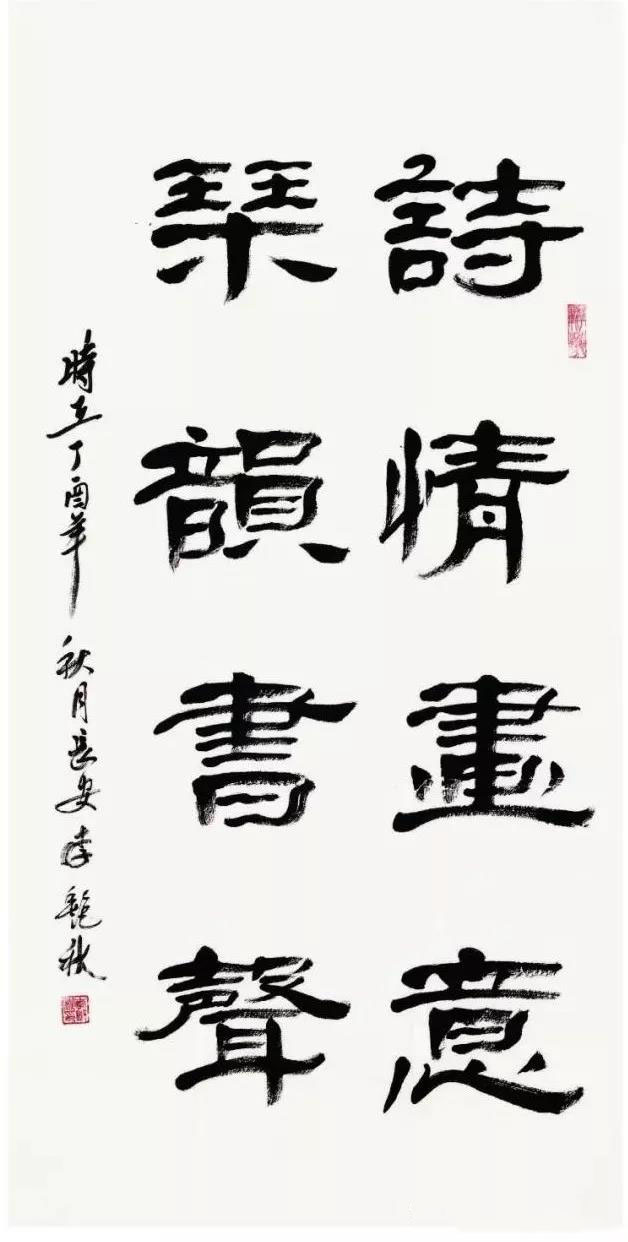 詩情畫意
琹韻書聲
時在丁酉年秋月長安李艷秋